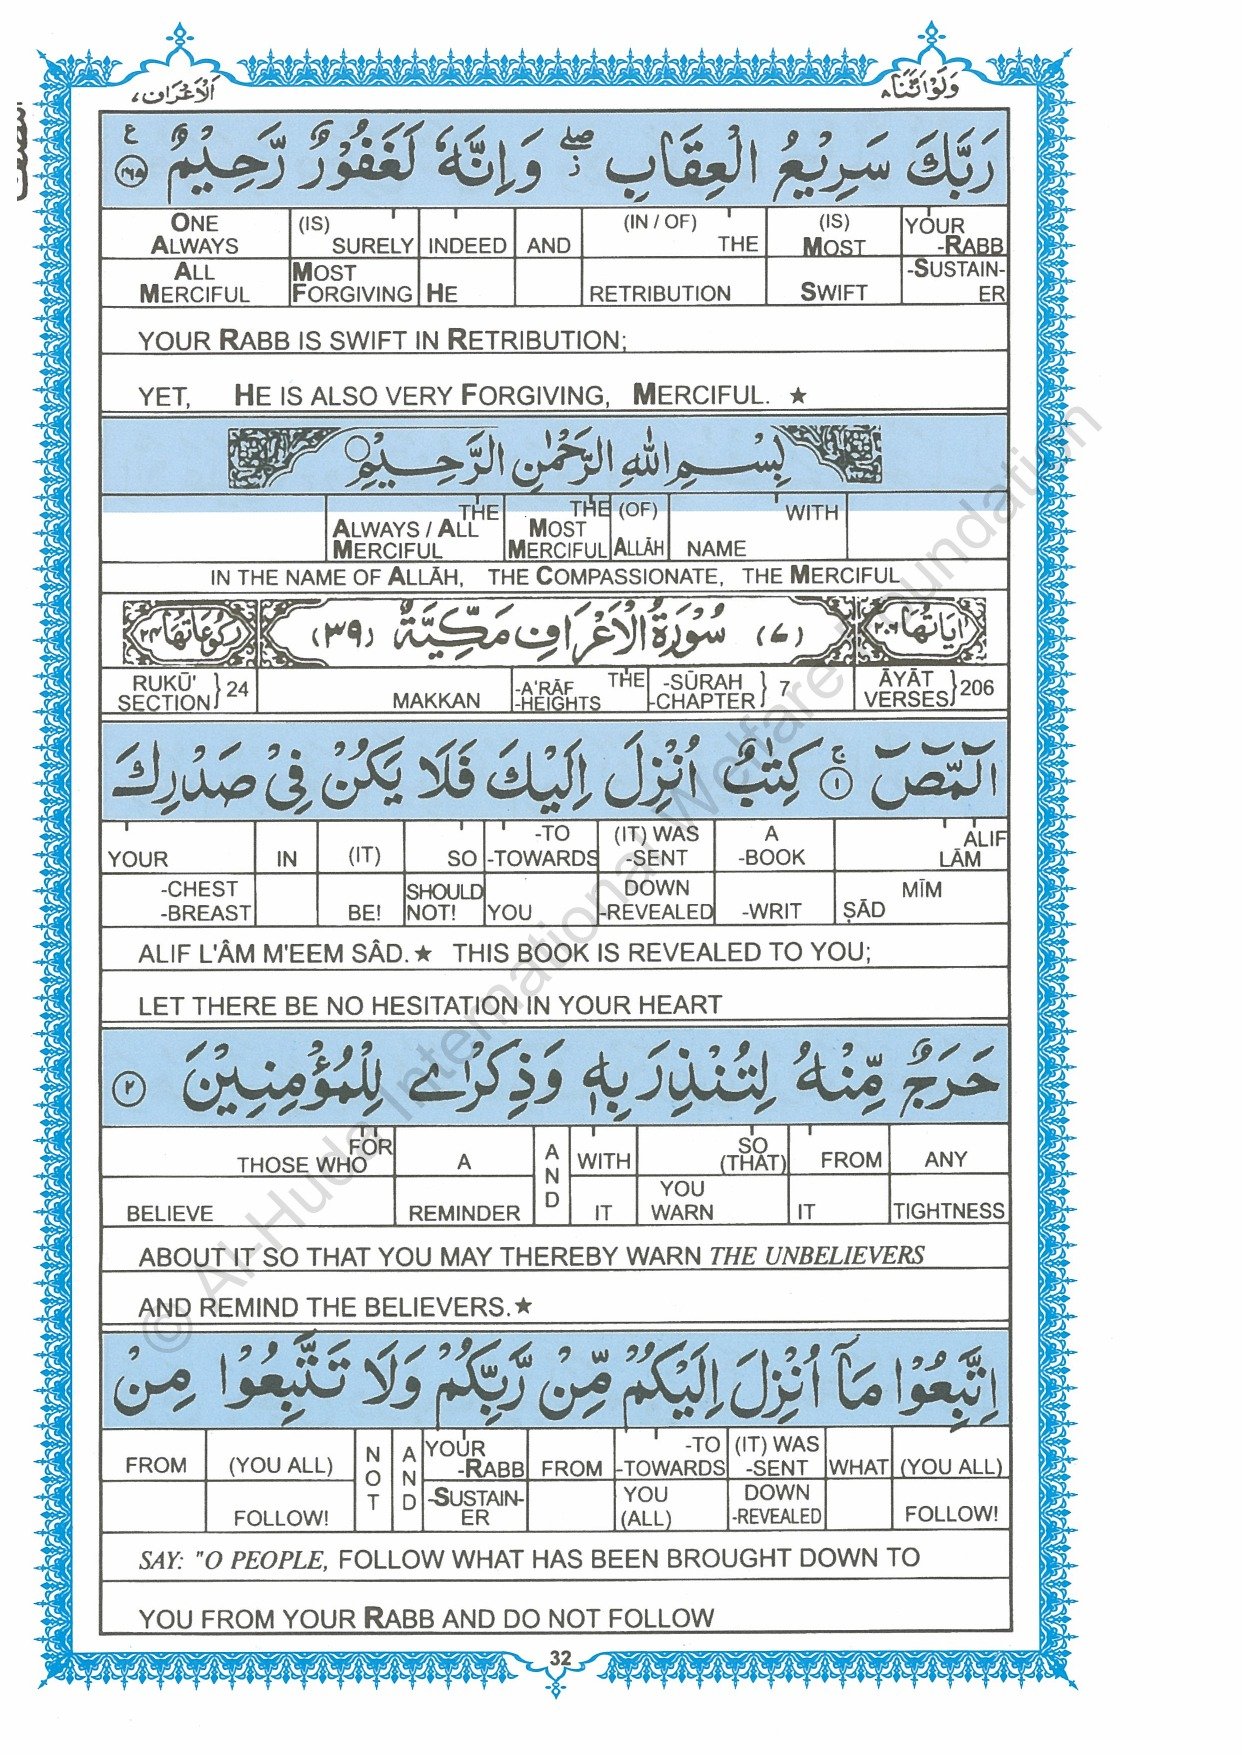 وَلَوْ اَنَّنَا ٨
اَلْاَعْرَاف ٧
رَبَّكَ سَرِيْعُ الْعِقَابِ ۖ وَاِنَّهٗ لَغَفُوْرٌ رَّحِيْمٌ ع ١٦٥
ONE (IS) SURELY INDEED AND (IN / OF) THE (IS) YOUR
ALWAYS MOST -RABB
ALL MOST HE RETRIBUTION SWIFT -SUSTAIN-
MERCIFUL FORGIVING ER
YOUR RABB IS SWIFT IN RETRIBUTION;
YET, HE IS ALSO VERY FORGIVING, MERCIFUL. ★
بِسْمِ اللهِ الرَّحْمٰنِ الرَّحِيْمِ
THE THE (OF) WITH
ALWAYS / ALL MOST
MERCIFUL MERCIFUL ALLĀH NAME
IN THE NAME OF ALLĀH, THE COMPASSIONATE, THE MERCIFUL
اٰيَاتُهَا ٢٠٦ (٧) سُوْرَةُ الْاَعْرَافِ مَكِّيَّةٌ (٣٩) رُكُوْعَاتُهَا ٢٤
RUKŪ' SECTION } 24 MAKKAN -A'RĀF -HEIGHTS THE -SŪRAH -CHAPTER } 7 ĀYĀT VERSES } 206
الٓمّٓصٓ ۚ ١ كِتٰبٌ اُنْزِلَ اِلَيْكَ فَلَا يَكُنْ فِيْ صَدْرِكَ
YOUR IN (IT) SO -TO -TOWARDS (IT) WAS -SENT A -BOOK ALIF LĀM
-CHEST -BREAST BE! SHOULD NOT! YOU DOWN -REVEALED -WRIT ṢĀD MĪM
ALIF L'ÂM M'EEM SÂD. ★ THIS BOOK IS REVEALED TO YOU;
LET THERE BE NO HESITATION IN YOUR HEART
حَرَجٌ مِّنْهُ لِتُنْذِرَ بِهٖ وَذِكْرٰى لِلْمُؤْمِنِيْنَ ٢
FOR THOSE WHO A AND WITH SO (THAT) FROM ANY
BELIEVE REMINDER IT YOU WARN IT TIGHTNESS
ABOUT IT SO THAT YOU MAY THEREBY WARN THE UNBELIEVERS
AND REMIND THE BELIEVERS. ★
اِتَّبِعُوْا مَآ اُنْزِلَ اِلَيْكُمْ مِّنْ رَّبِّكُمْ وَلَا تَتَّبِعُوْا مِنْ
FROM (YOU ALL) NOT AND YOUR -RABB FROM -TO -TOWARDS (IT) WAS -SENT WHAT (YOU ALL)
FOLLOW! -SUSTAIN- ER YOU (ALL) DOWN -REVEALED FOLLOW!
SAY: "O PEOPLE, FOLLOW WHAT HAS BEEN BROUGHT DOWN TO
YOU FROM YOUR RABB AND DO NOT FOLLOW
32
© Al-Huda International Welfare Foundation